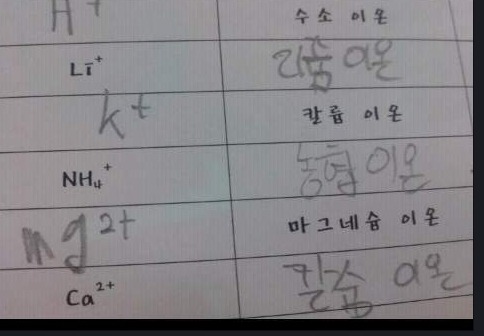 H⁺ 수소 이온
Li⁺ 리튬 이온
k⁺ 칼륨 이온
NH₄⁺ 농협 이온
mg²⁺ 마그네슘 이온
Ca²⁺ 칼슘 이온